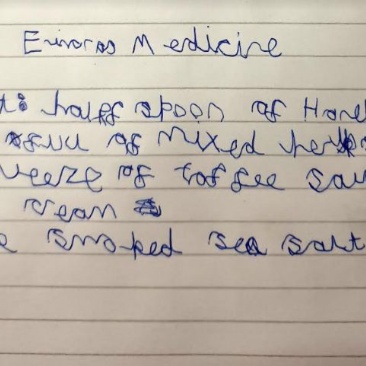 Medicine
half spoon of Hone
of mixed herbs
of toffee sau
ream
smoked sea salt